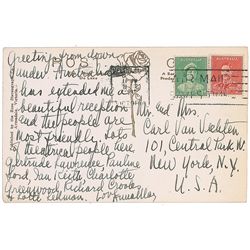 POST
Greeting from down
under Australia
has extended me a
beautiful reception
and the people are
most friendly. Lots
of theatrical people here
Gertrude Lawrence, Pauline
Ford, Ian Keith Charlotte
Greenwood, Richard Crooks
& Lotte Lehmann. Love
AIR MAIL
Mr. and Mrs.
Carl Van Vechten
101, Central Park W.
New York, N.Y.
U.S.A.